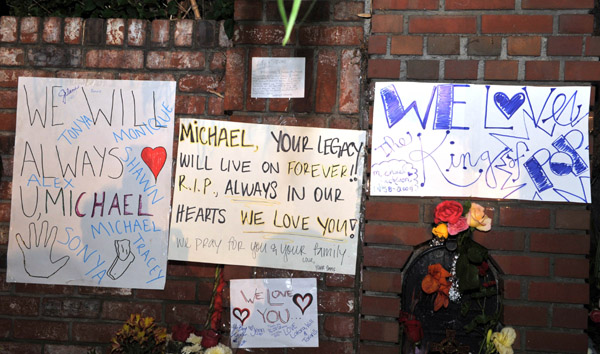 WE WILL
ALWAYS ♥
U, MICHAEL
TONYA
MONIQUE
SHAWN
ALEX
MICHAEL
SONYA
TRACEY
MICHAEL, YOUR LEGACY
WILL LIVE ON FOREVER!!
R.I.P., ALWAYS IN OUR
HEARTS WE LOVE YOU!
We pray for you & your family
Love,
WE LOVE
YOU...
WE Love ♥
the King of
POP